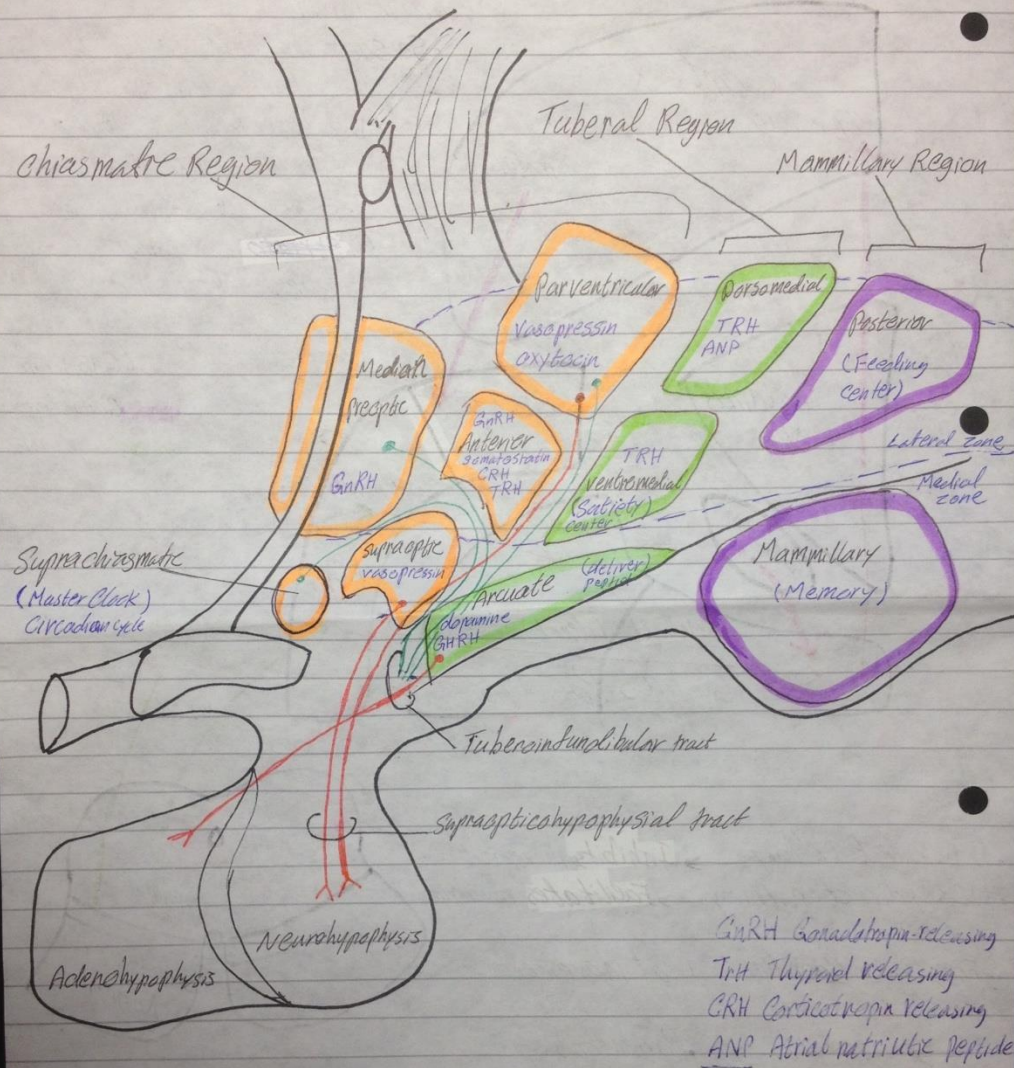 Tuberal Region
Chiasmatic Region
Mammillary Region
Parventricular
Vasopressin
oxytocin
Dorsomedial
TRH
ANP
Posterior
(Feeding
Center)
Median
Preoptic
GnRH
GnRH
Anterior
Somatostatin
CRH
TRH
TRH
Ventromedial
(Satiety)
center
Lateral zone
Medial
zone
Supraoptic
vasopressin
Suprachiasmatic
(Master Clock)
Circadian cycle
Arcuate
(deliver)
peptide
dopamine
GHRH
Mammillary
(Memory)
Tuberoinfundibular tract
Supraopticohypophysial tract
Neurohypophysis
Adenohypophysis
GnRH Gonadotropin-releasing
TrH Thyroid releasing
CRH Corticotropin releasing
ANP Atrial natriutic peptide